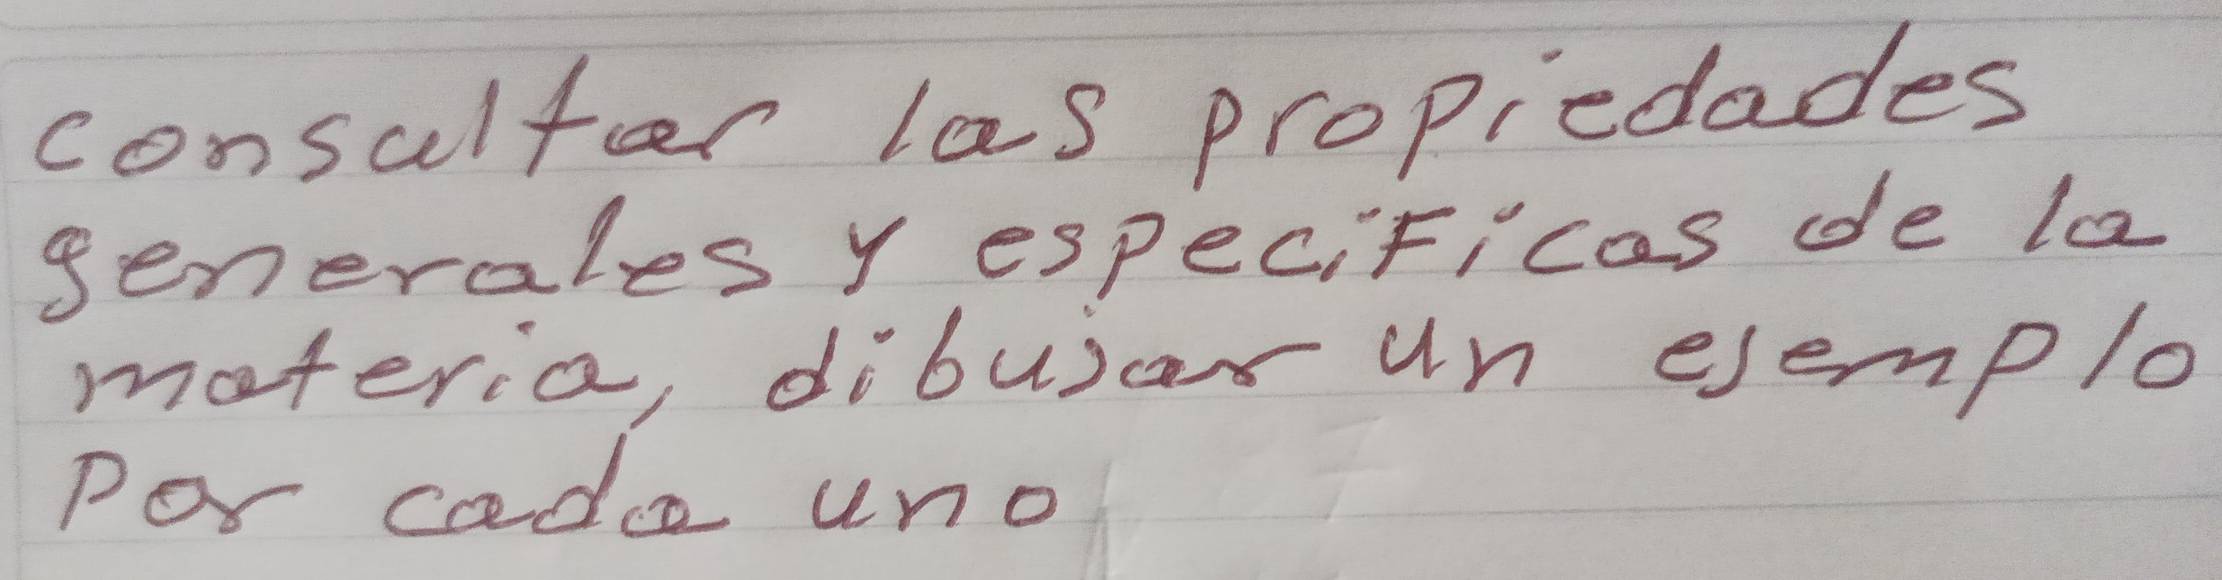 consultar las propiedades
generales y especificas de la
materia, dibujar un ejemplo
por cada uno